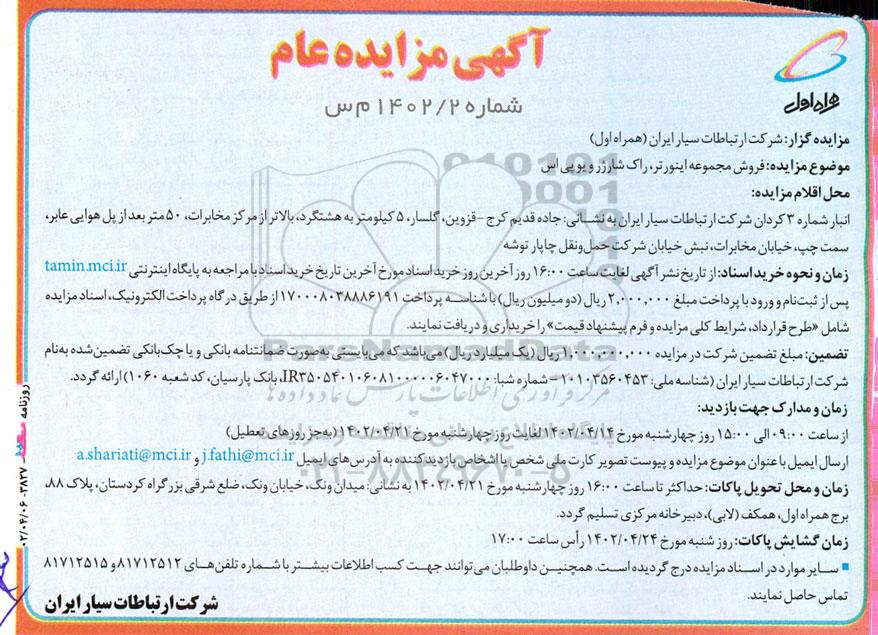 آگهی مزایده عام
شماره ۱۴۰۲/۲ م س
همراه اول
مزایده گزار: شرکت ارتباطات سیار ایران (همراه اول)
موضوع مزایده: فروش مجموعه اینورتر، راک شارژر و یو پی اس
محل اقلام مزایده:
انبار شماره ۳ کردان شرکت ارتباطات سیار ایران به نشانی: جاده قدیم کرج - قزوین، گلسار، ۵ کیلومتر به هشتگرد، بالاتر از مرکز مخابرات، ۵۰ متر بعد از پل هوایی عابر،
سمت چپ، خیابان مخابرات، نبش خیابان شرکت حمل‌ونقل چاپار توشه
زمان و نحوه خرید اسناد: از تاریخ نشر آگهی لغایت ساعت ۱۶:۰۰ روز آخرین روز خرید اسناد مورخ آخرین تاریخ خرید اسناد با مراجعه به پایگاه اینترنتی tamin.mci.ir
پس از ثبت‌نام و ورود با پرداخت مبلغ ۲,۰۰۰,۰۰۰ ریال (دو میلیون ریال) با شناسه پرداخت ۱۷۰۰۰۸۰۳۸۸۸۶۱۹۱ از طریق درگاه پرداخت الکترونیک، اسناد مزایده
شامل «طرح قرارداد، شرایط کلی مزایده و فرم پیشنهاد قیمت» را خریداری و دریافت نمایند.
تضمین: مبلغ تضمین شرکت در مزایده ۱,۰۰۰,۰۰۰,۰۰۰ ریال (یک میلیارد ریال) می‌باشد که می‌بایستی به‌صورت ضمانتنامه بانکی و یا چک بانکی تضمین‌شده به‌نام
شرکت ارتباطات سیار ایران (شناسه ملی: ۱۰۱۰۳۵۶۰۴۵۳ - شماره شبا: IR۳۵۰۵۴۰۱۰۶۰۸۱۰۰۰۰۰۶۰۴۷۰۰۰، بانک پارسیان، کد شعبه ۱۰۶۰) ارائه گردد.
زمان و مدارک جهت بازدید:
از ساعت ۰۹:۰۰ الی ۱۵:۰۰ روز چهارشنبه مورخ ۱۴۰۲/۰۴/۱۴ لغایت روز چهارشنبه مورخ ۱۴۰۲/۰۴/۲۱ (به جز روزهای تعطیل)
ارسال ایمیل با عنوان موضوع مزایده و پیوست تصویر کارت ملی شخص یا اشخاص بازدیدکننده به آدرس‌های ایمیل j.fathi@mci.ir و a.shariati@mci.ir
زمان و محل تحویل پاکات: حداکثر تا ساعت ۱۶:۰۰ روز چهارشنبه مورخ ۱۴۰۲/۰۴/۲۱ به نشانی: میدان ونک، خیابان ونک، ضلع شرقی بزرگراه کردستان، پلاک ۸۸،
برج همراه اول، همکف (لابی)، دبیرخانه مرکزی تسلیم گردد.
زمان گشایش پاکات: روز شنبه مورخ ۱۴۰۲/۰۴/۲۴ رأس ساعت ۱۷:۰۰
■ سایر موارد در اسناد مزایده درج گردیده است. همچنین داوطلبان می‌توانند جهت کسب اطلاعات بیشتر با شماره تلفن‌های ۸۱۷۱۲۵۱۲ و ۸۱۷۱۲۵۱۵
تماس حاصل نمایند.
شرکت ارتباطات سیار ایران
روزنامه ۳۸۲۷ - ۰۲/۰۴/۰۶
ParsNamadData
مرکز فرآوری اطلاعات پارس نماد داده‌ها
۰۲۱-۸۸۳۴۹۶۷۰-۵